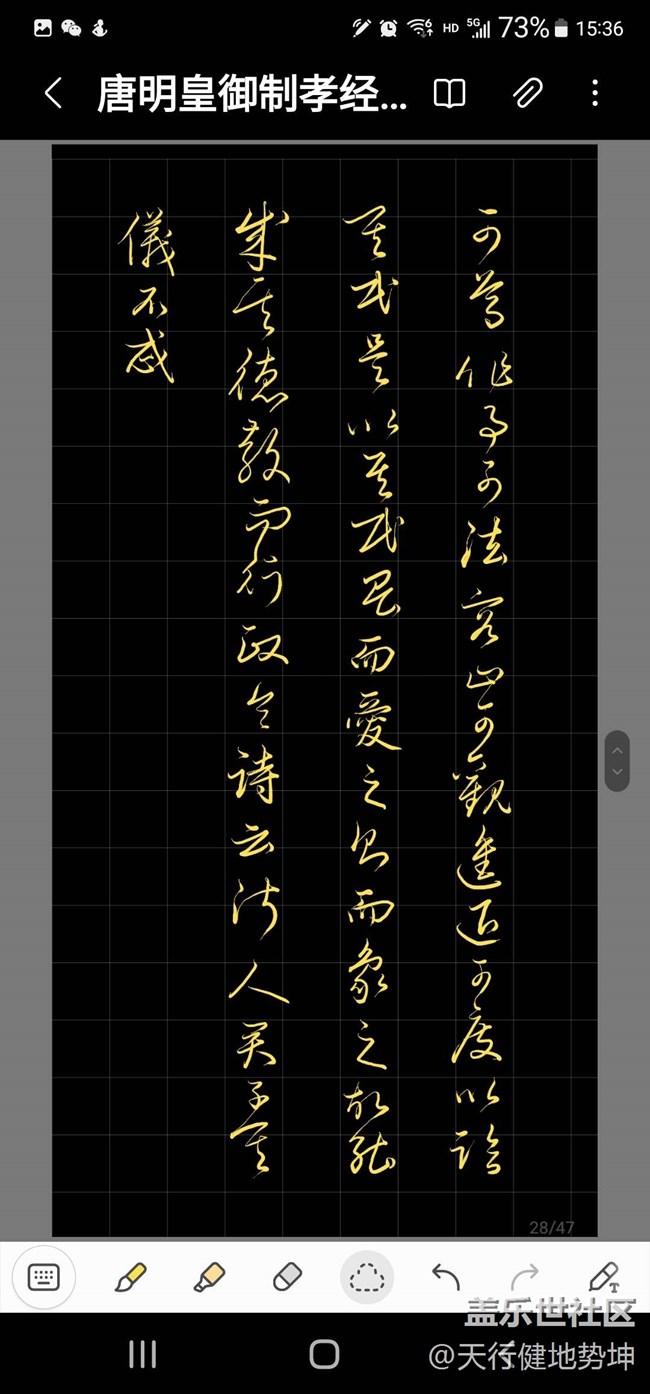 15:36
73%
HD
5G
6
唐明皇御制孝经...
可尊作事可法容止可觀進退可度以臨
其民是以其民畏而愛之則而象之故能
成其德教而行政令詩云淑人君子其
儀不忒
28/47
盖乐世社区
@天行健地势坤